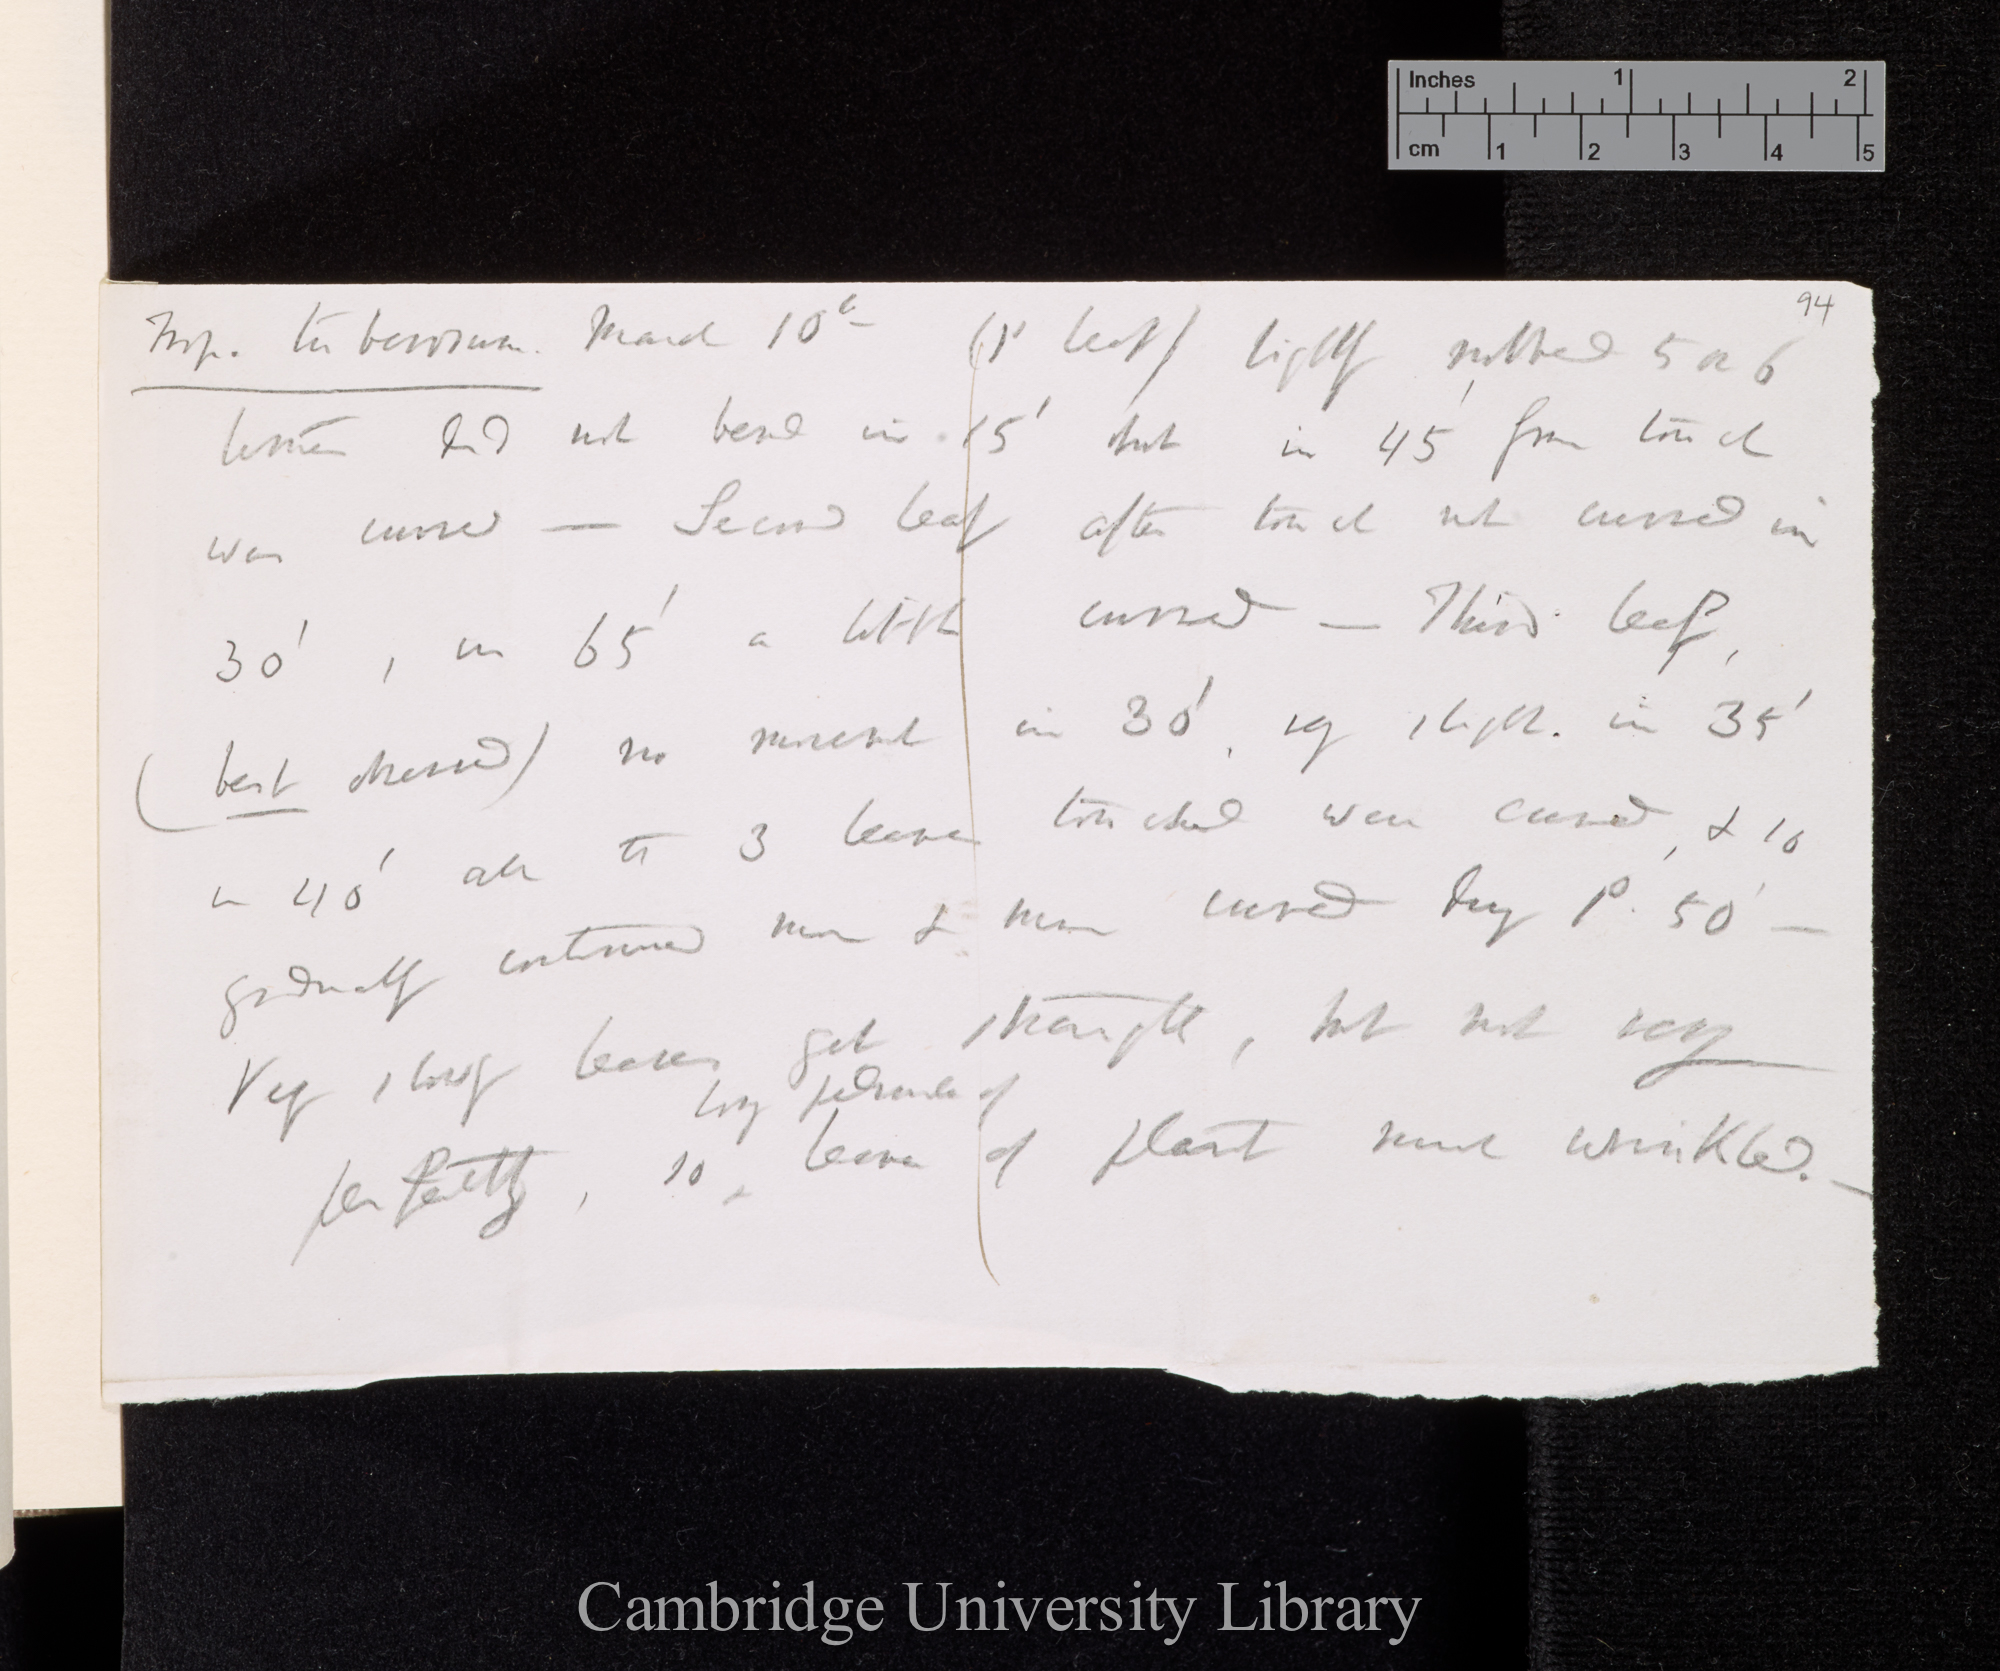 Inches 1 2
cm 1 2 3 4 5
94
Trop. tuberosum. March 10th (1st leaf) lightly rubbed 5 or 6
times did not bend in 15' but in 45' from touch
was curved — Second leaf after touch not curved in
30', in 65' a little curved — Third leaf,
(best observed) no movement in 30', very slight. in 35'
in 40' all the 3 leaves touched were curved, & so
gradually continued more & more curved during 1°. 50' —
Very slowly leaves got straight, but not very
long peduncles of
perfectly, so leaves of plant much wrinkled. —
Cambridge University Library